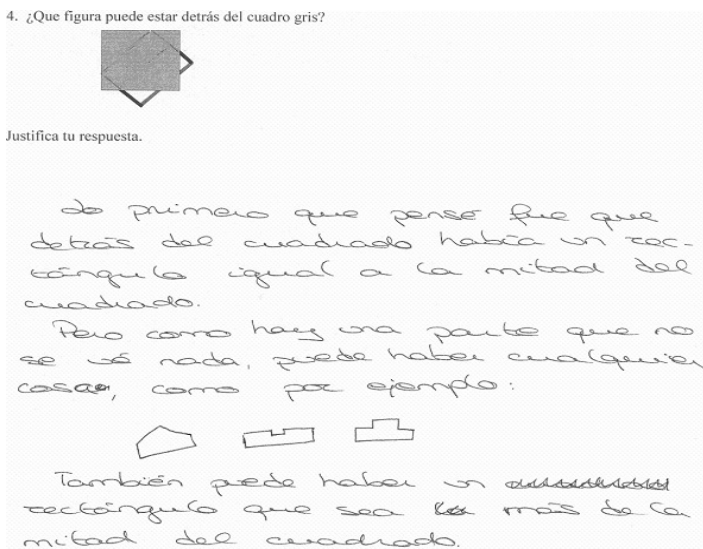 4. ¿Que figura puede estar detrás del cuadro gris?
Justifica tu respuesta.
Lo primero que pensé fue que
detrás del cuadrado había un rec-
tángulo igual a la mitad del
cuadrado.
Pero como hay una parte que no
se vé nada, puede haber cualquier
cosa, como por ejemplo:
También puede haber un
rectángulo que sea más de la
mitad del cuadrado.